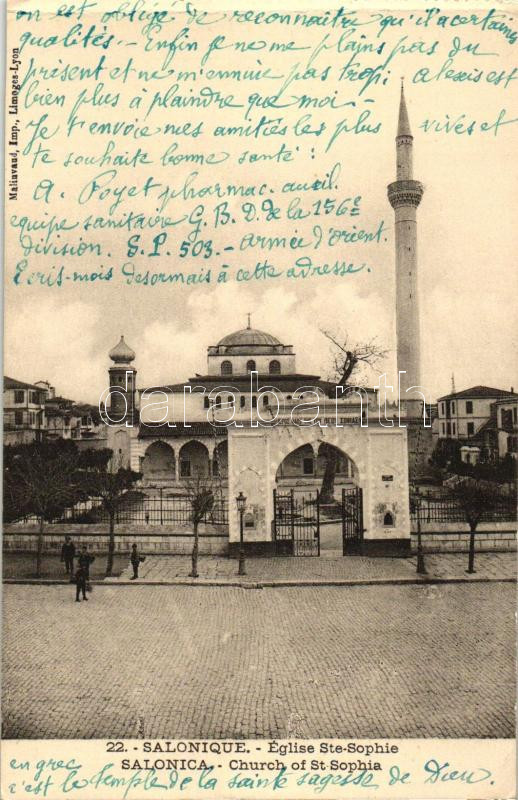 on est obligé de reconnaître qu'il a certaines
qualités. - Enfin je ne me plains pas du
présent et ne m'ennuie pas trop; alexis est
bien plus à plaindre que moi. -
Je t'envoie mes amitiés les plus vives et
te souhaite bonne santé :
A. Poyet pharmac. auxil.
equipe sanitaire G. B. D. de la 156e
division. S.P. 503. - armée d'orient.
Ecris-moi desormais à cette adresse.
Malinvaud, Imp., Limoges-Lyon
darabanth.com
22. - SALONIQUE. - Église Ste-Sophie
SALONICA. - Church of St Sophia
en grec
c'est le temple de la sainte sagesse de Dieu.